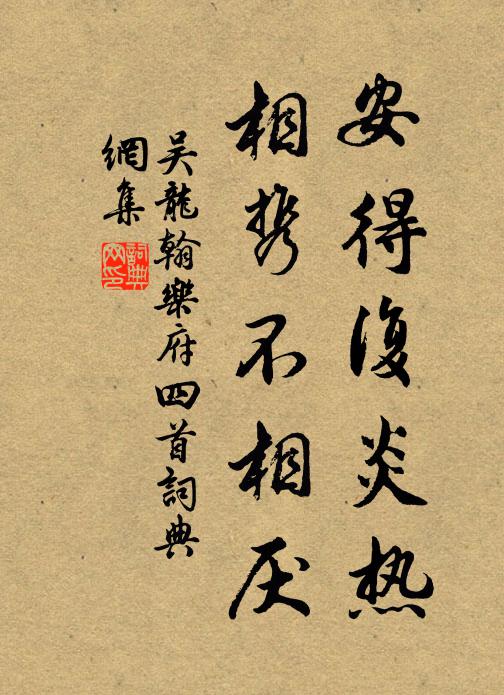 安得復炎热
相携不相厌
吴龍翰樂府四首詞典
網集
詞典
网印